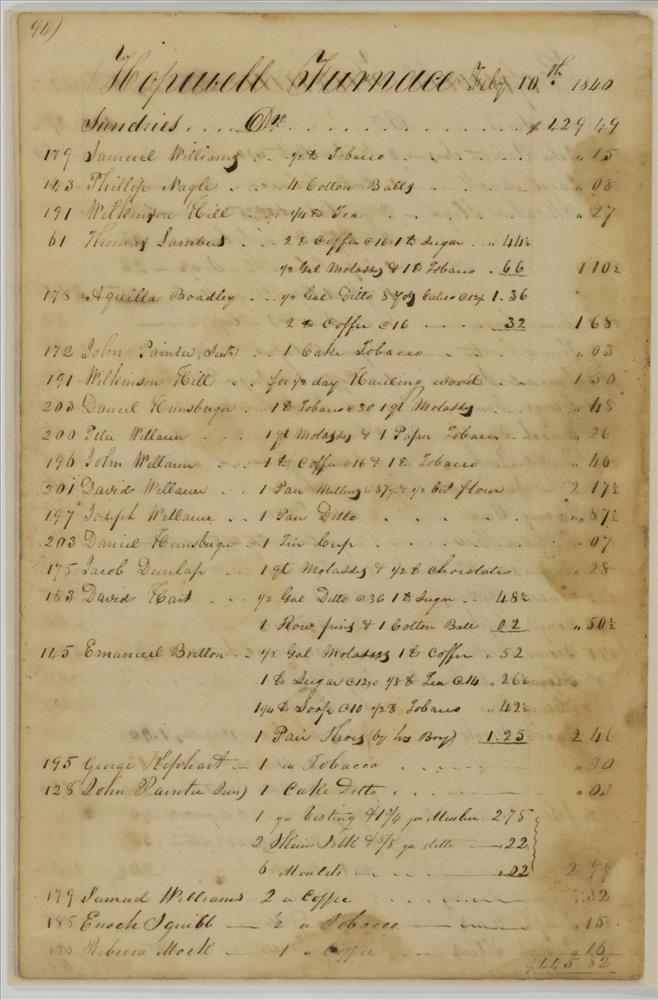 94)
Hopewell Furnace Feby 10th 1840
Sundries .... Dr. ............ $ 429 49
179 Samuel Williams .. 1/2 lb Tobacco ...... " 15
143 Phillip Nagle .. 4 Cotton Balls ..... " 08
191 Wilkinson Hill .. 1/4 lb Tea ...... " 27
61 Thomas Lambert .. 2 lb Coffee @16 1 lb Sugar .. " 44½
1/2 Gal Molasses & 1 lb Tobacco . 66 1 10½
178 Aquilla Boadley .. 1/2 Gal Ditto 8 Yds Calico @ 1.36
2 lb Coffee @16 .... 32 1 68
172 John Painter (Senr) .. 1 Cake Tobacco .... " 03
191 Wilkinson Hill .. for 1/2 day Hauling wood .. 1 50
203 Daniel Hunsberger . 1 lb Tobacco @30 1 qt Molasses " 48
200 Peter Willauer ... 1 qt Molasses & 1 Paper Tobacco . " 26
196 John Willauer ... 1 lb Coffee @16 & 1 lb Tobacco . " 46
201 David Willauer .. 1 Pair @87½ & 1/2 Cwt flour 2 17½
197 Joseph Willauer .. 1 Pair Ditto ...... " 87½
203 Daniel Hunsberger .. 1 Tin Cup ...... " 07
175 Jacob Dunlap ... 1 qt Molasses & 1/2 lb Chocolate " 28
153 David Hart ... 1/2 Gal Ditto @36 1 lb Sugar .. 48½
1 Row pins & 1 Cotton Ball 02 " 50½
145 Emanuel Britton .. 1/2 Gal Molasses 1 lb Coffee " 52
1 lb Sugar @12½ 1/8 lb Tea @14 " 26½
1¼ lb Soap @10 1/2 lb Tobacco " 42½
1 Pair Shoes (by his Boy) 1.25 2 46
195 George Hephart — 1 " Tobacco ..... " 30
128 John Painter Junr) 1 Cake Ditto ...... " 03
1 yd Vesting & 1¾ yds Muslin 2.75
2 Skeins Silk & 5/8 yd ditto — .22
6 Moulds ——— .02 2 99
179 Samuel Williams 2 " Coffee ——— " 32
185 Enoch Squibb — ½ " Tobacco ——— " 15
Rebecca Mock — 1 " Coffee — " 16
$ 445 82